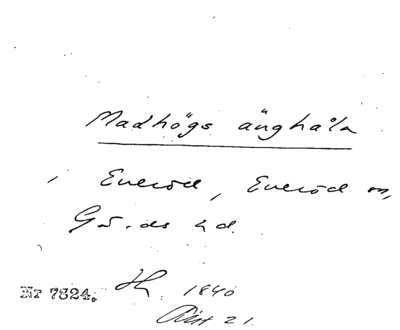 Madhögs änghåla
, Everöd, Everöd sn,
Gä.ds hd.
Nr 7824. 1840
21.